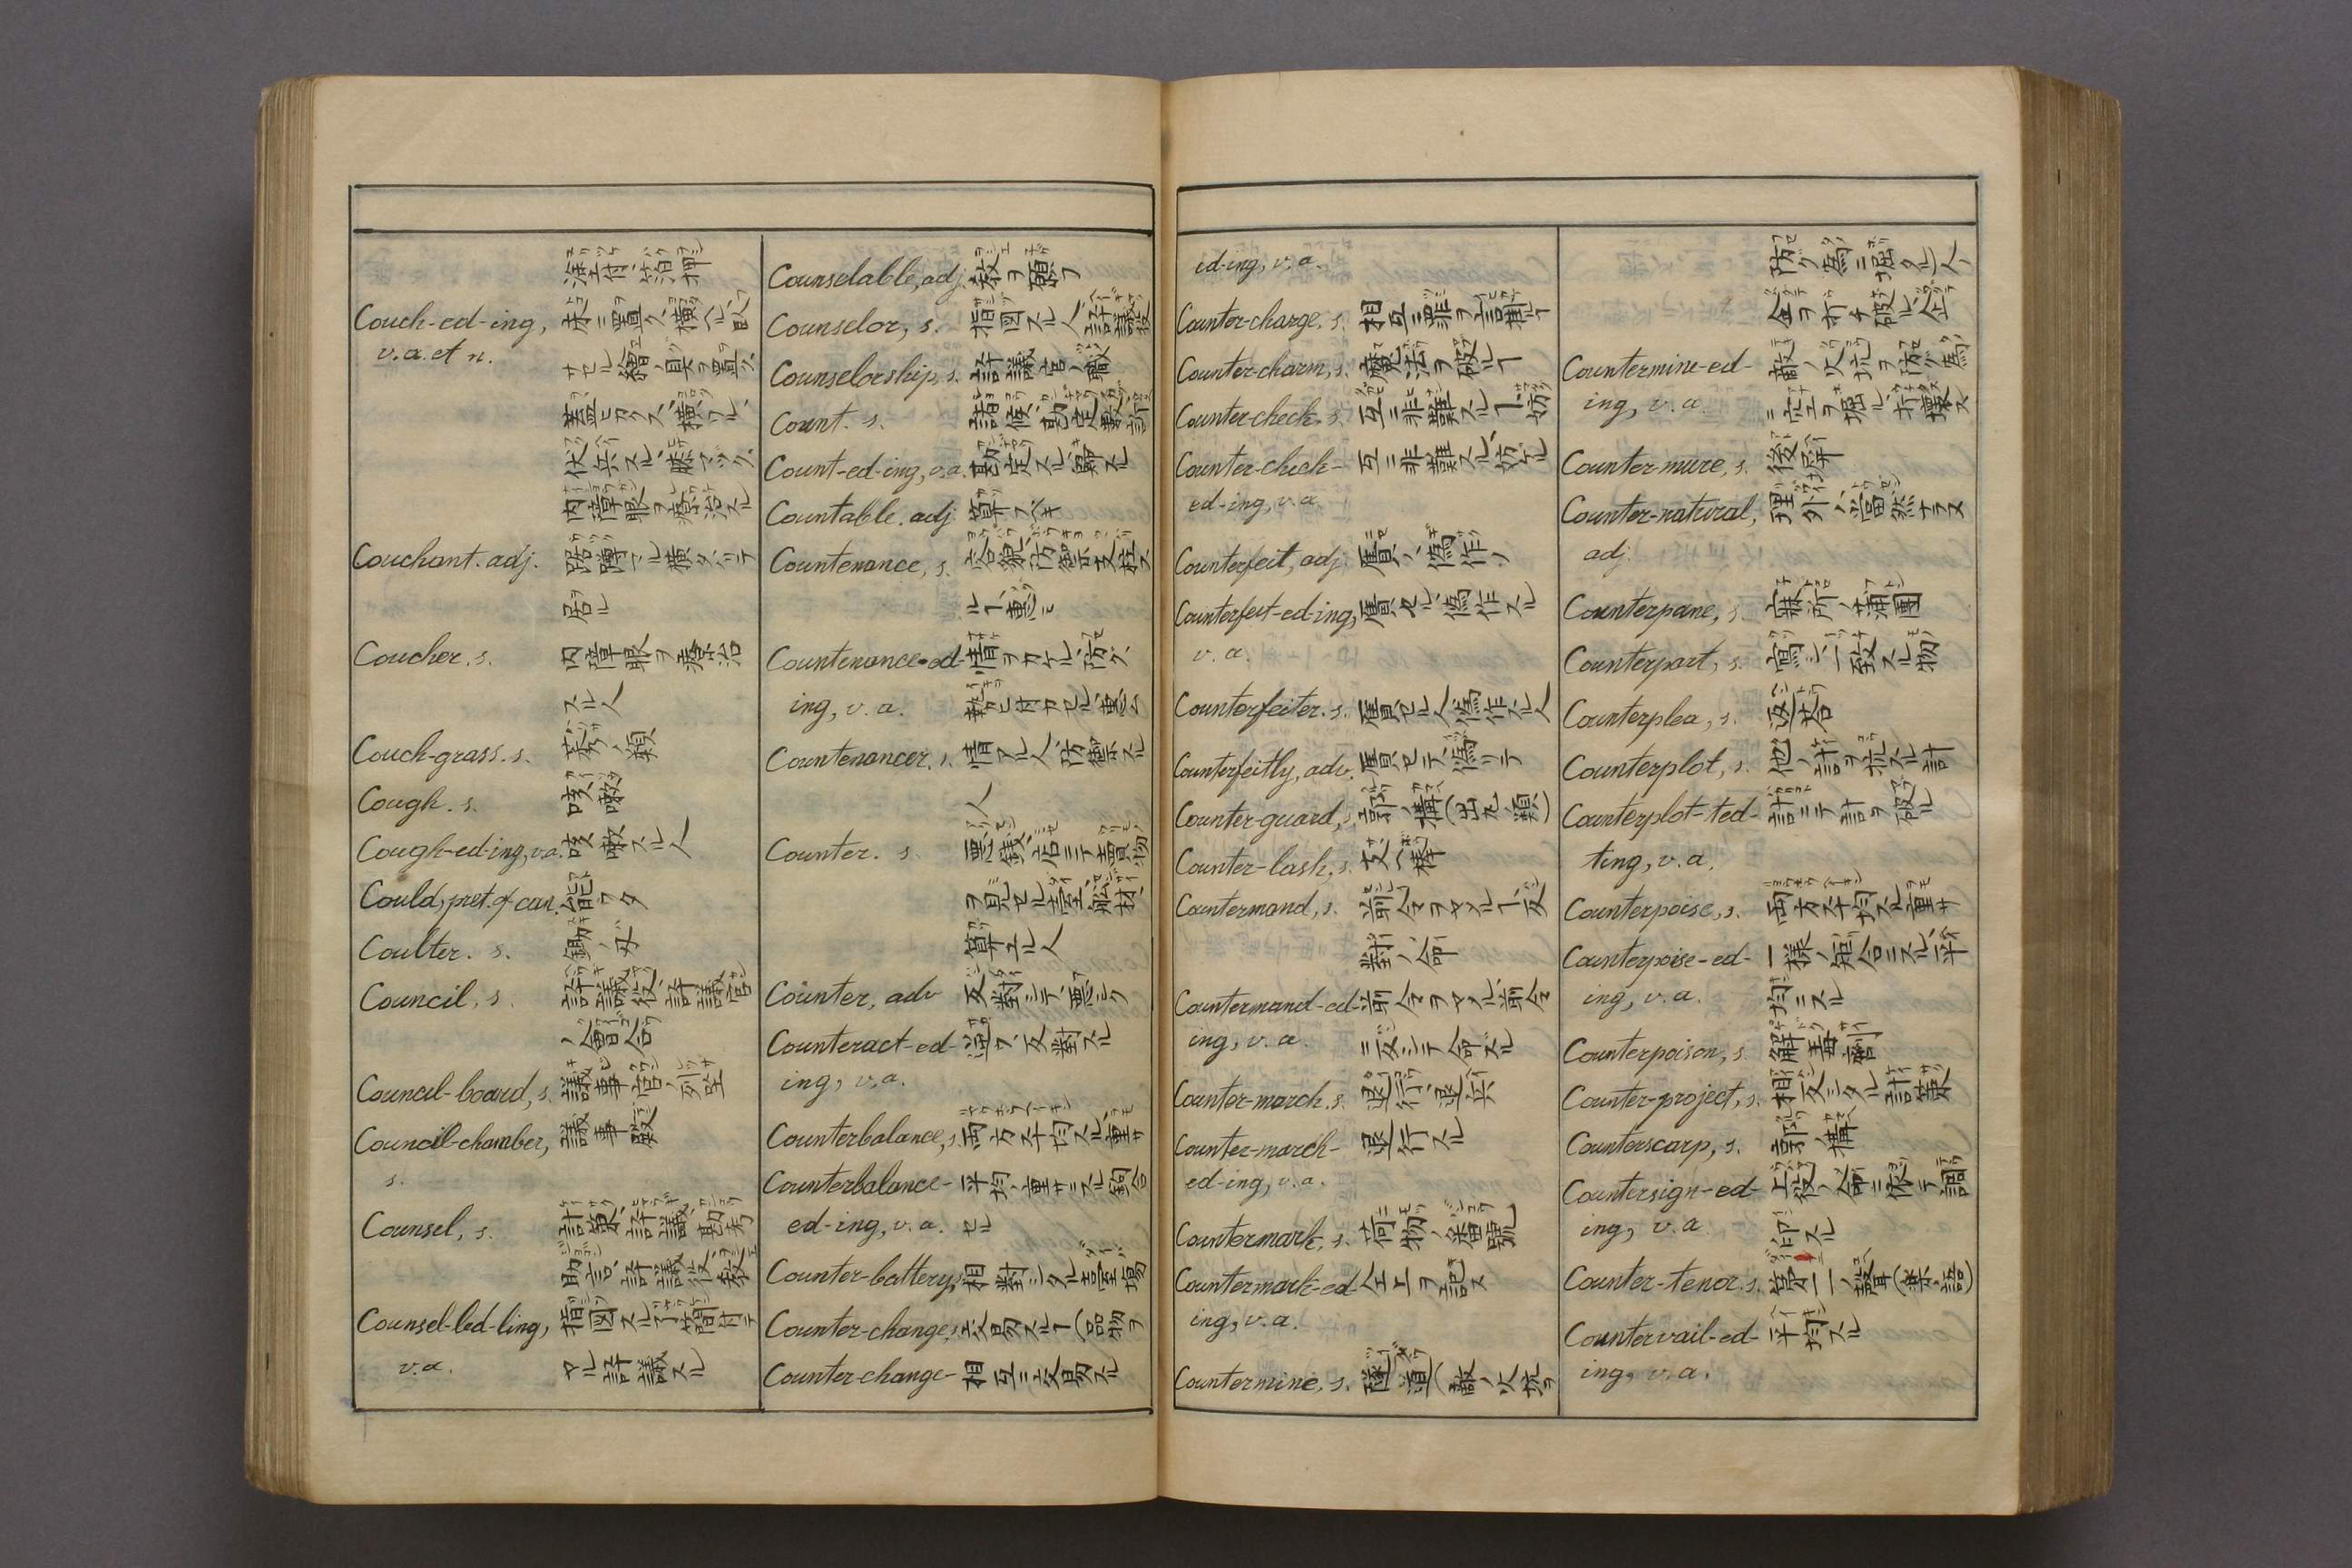 塗付ル沿押
Couch-ed-ing, 床ニ置ク、横ヘル、臥
v.a. et n. サセル、繪ノ具ヲ置ク、
蓋ニカクス、横ハル、
伏兵スル、
内障眼ヲ療治スル
Couchant. adj. 蹲ル、横タハリテ
居ル
Coucher. s. 内障眼ヲ療治
スル人
Couch-grass. s. ノ類
Cough. s. 咳嗽
Cough-ed-ing, v.a. 咳嗽スル人
Could, pret. of can. 能フタ
Coulter. s. 鋤ノ刃
Council, s. 評議役、評議官
ノ會合
Council-board, s. 議事官ノ列坐
Council-chamber, 議事殿
s.
Counsel, s. 計策、評議、勘考
助言、評議役、教
Counsel-led-ling, 指図スル
v.a. マル評議スル
Counselable, adj. 教ヲ願フ
Counselor, s. 指図スル人、評議役
Counselorship, s. 評議官ノ職
Count. s. 諸侯、勘定、數、訴
Count-ed-ing, v.a. 勘定スル、歸スル
Countable. adj. 算フベキ
Countenance, s. 容貌、防禦、支柱ス
ルヿ、恵ミ
Countenance-ed- 情ヲカケル、防グ、
ing, v.a. 恵ム
Countenancer. s. 情アル人、防禦スル
人
Counter. s. 悪錢、店ニテ賣物
ヲ見セル臺、船材、
算エル人
Counter, adv 反對シテ、悪シク
Counteract-ed- 逆フ、反對スル
ing, v.a.
Counterbalance, s. 両方平均スル重サ
Counterbalance- 平均ノ重サニスル、釣合
ed-ing, v.a. セル
Counter-battery, s. 相對シタル臺場
Counter-change, s. 交易スルヿ(品物ヲ
Counter-change- 相互ニ交易スル
ed-ing, v.a.
Counter-charge. s. 相互ニ罪ヲ言掛ルヿ
Counter-charm, s. 魔法ヲ破ルヿ
Counter-check. s. 互ニ非難スルヿ、妨
Counter-check- 互ニ非難スル、妨ゲル
ed-ing, v.a.
Counterfeit, adj. 贋ノ、偽作ノ
Counterfeit-ed-ing, 贋セル、偽作スル
v.a.
Counterfeiter. s. 贋セル人、偽作スル人
Counterfeitly, adv. 贋セテ、偽リテ
Counter-guard, s. 郭ノ構(出丸ノ類)
Counter-lash, s. 棒
Countermand, s. 前令ヲヤメルヿ、反
對ノ命
Countermand-ed- 前令ヲヤメル、前令
ing, v.a. ニ反シテ命スル
Counter-march. s. 退行、退兵
Counter-march- 退行スル
ed-ing, v.a.
Countermark, s. 荷物ノ番號
Countermark-ed- 仝上ヲ記ス
ing, v.a.
Countermine, s. 隧道(敵ノ火坑ヲ
防グ為ニ掘タル)人
仝ヲ打チ破ル、仝
Countermine-ed- 敵ノ火坑ヲ防グ為
ing, v.a. ニ穴ヲ掘ル、打壊ス
Counter-mure, s. 後屏
Counter-natural, 理外ノ、當然ナラヌ
adj.
Counterpane, s. 寐所ノ蒲團
Counterpart, s. 寫シ、一致スル物
Counterplea, s. 返答
Counterplot, s. 他ノ計ヲ拡スル計
Counterplot-ted- 計ニテ計ヲ破ル
ting, v.a.
Counterpoise, s. 両方平均スル重サ
Counterpoise-ed- 一様ノ釣合ニスル、平
ing, v.a. 均ニスル
Counterpoison, s. 解毒劑
Counter-project, s. 相反シタル計策
Counterscarp, s. 郭ノ構
Countersign-ed- 上役ノ命ニ依テ調
ing, v.a 印スル
Counter-tenor. s. 第二ノ聲(楽語)
Countervail-ed- 平均スル
ing, v.a.